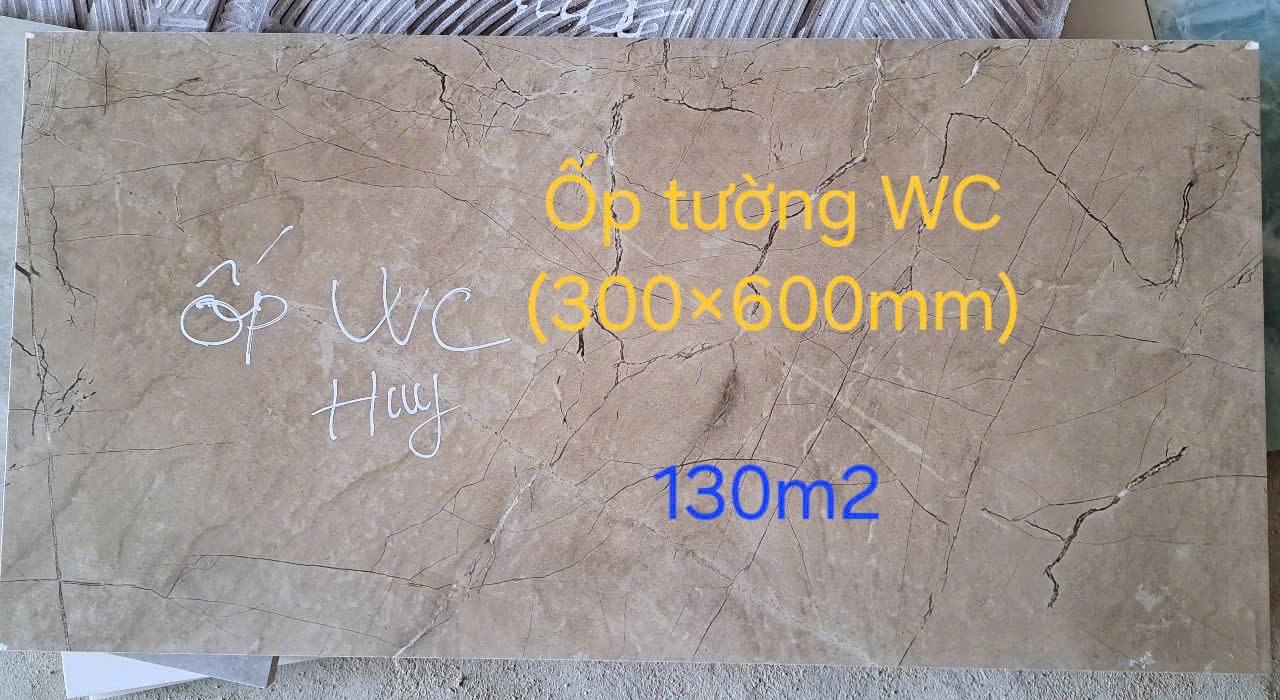 Ốp WC
Huy
Ốp tường WC
(300×600mm)
130m2